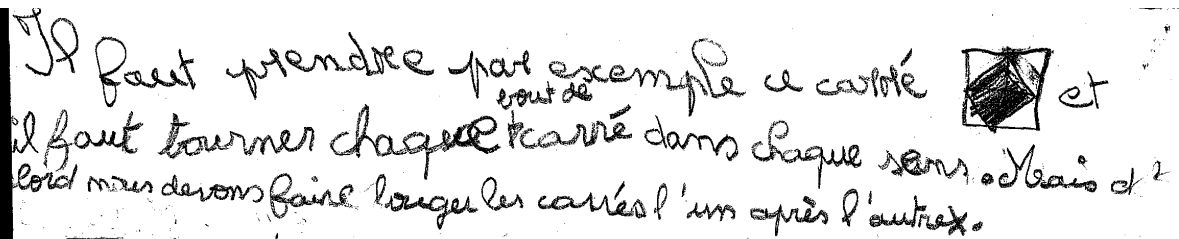 Il faut prendre par exemple ce carré et
bout de
il faut tourner chaque carré dans chaque sens. Mais d'
bord nous devons faire bouger les carrés l'un après l'autre.